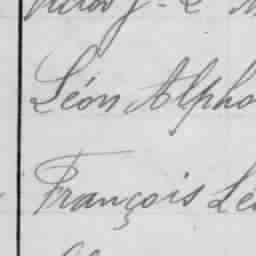 Léon Alpho
François Lé